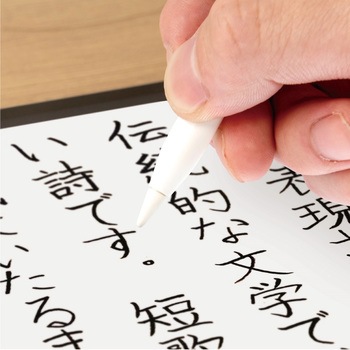 表現
伝統的な文学で
い詩です。短歌
いたるき